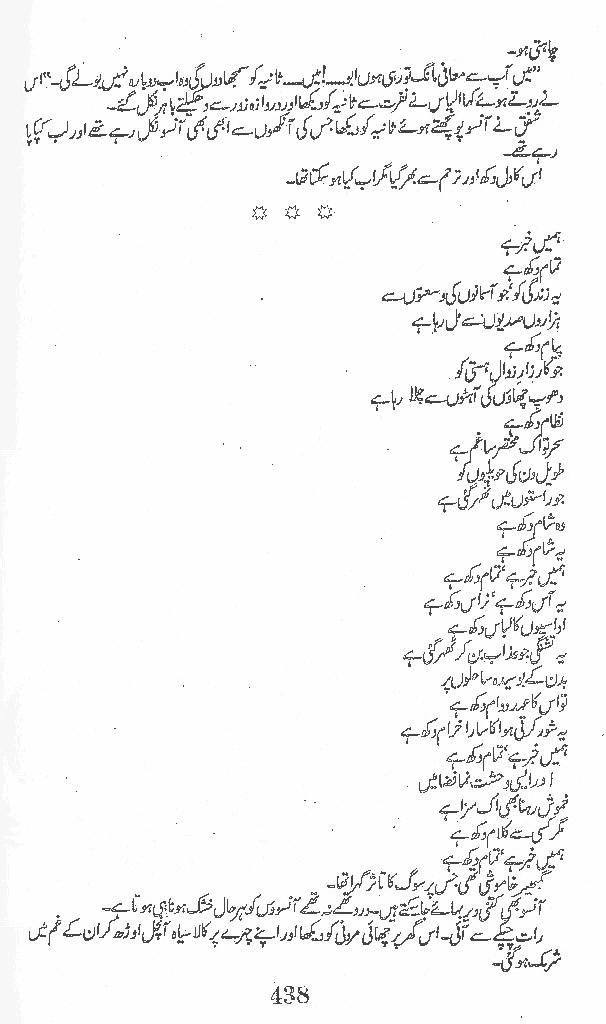 چاہتی ہو۔
"میں آپ سے معافی مانگ تو رہی ہوں ابو!۔۔۔ میں۔۔۔ ثانیہ کو سمجھا دوں گی وہ اب دوبارہ نہیں بولے گی۔" اس
نے روتے ہوئے کہا الیاس نے نفرت سے ثانیہ کو دیکھا اور دروازہ زور سے دھکیلتے باہر نکل گئے۔
شفق نے آنسو پونچھتے ہوئے ثانیہ کو دیکھا جس کی آنکھوں سے ابھی بھی آنسو نکل رہے تھے اور لب کپکپا
رہے تھے۔
اس کا دل دکھ اور ترحم سے بھر گیا مگر اب کیا ہو سکتا تھا۔
☆ ☆ ☆
ہمیں خبر ہے
تمام دکھ ہے
یہ زندگی کو، جو آسمانوں کی وسعتوں سے
ہزاروں صدیوں سے مل رہا ہے
پیام دکھ ہے
جو کارزار زوال ہستی کو
دھوپ چھاؤں کی آہٹوں سے چلا رہا ہے
نظام دکھ ہے
سحر تو اک مختصر سا غم ہے
طویل دن کی حویلیوں کو
جو راستوں میں ٹھہر گئی ہے
وہ شام دکھ ہے
یہ شام دکھ ہے
ہمیں خبر ہے، تمام دکھ ہے
یہ آس دکھ ہے، نراس دکھ ہے
اداسیوں کا لباس دکھ ہے
یہ تشنگی جو عذاب بن کر ٹھہر گئی ہے
بدن کے بوسیدہ ساحلوں پر
تو اس کا عہد دوام دکھ ہے
یہ شور کرتی ہوا کا سارا خرام دکھ ہے
ہمیں خبر ہے، تمام دکھ ہے
اور ایسی وحشت نما فضا میں
خموش رہنا بھی اک سزا ہے
مگر کسی سے کلام دکھ ہے
ہمیں خبر ہے، تمام دکھ ہے
گمبھیر خاموشی تھی جس پر سوگ کا تاثر گہرا تھا۔
آنسو بھی کتنی دیر بہائے جا سکتے ہیں۔ درد تھمے نہ تھمے آنسوؤں کو بہرحال خشک ہونا ہی ہوتا ہے۔
رات چپکے سے آئی۔ اس گھر پر چھائی ویرانی کو دیکھا اور اپنے چہرے پر کالا سیاہ آنچل اوڑھ کر ان کے غم میں
شریک ہو گئی۔
438